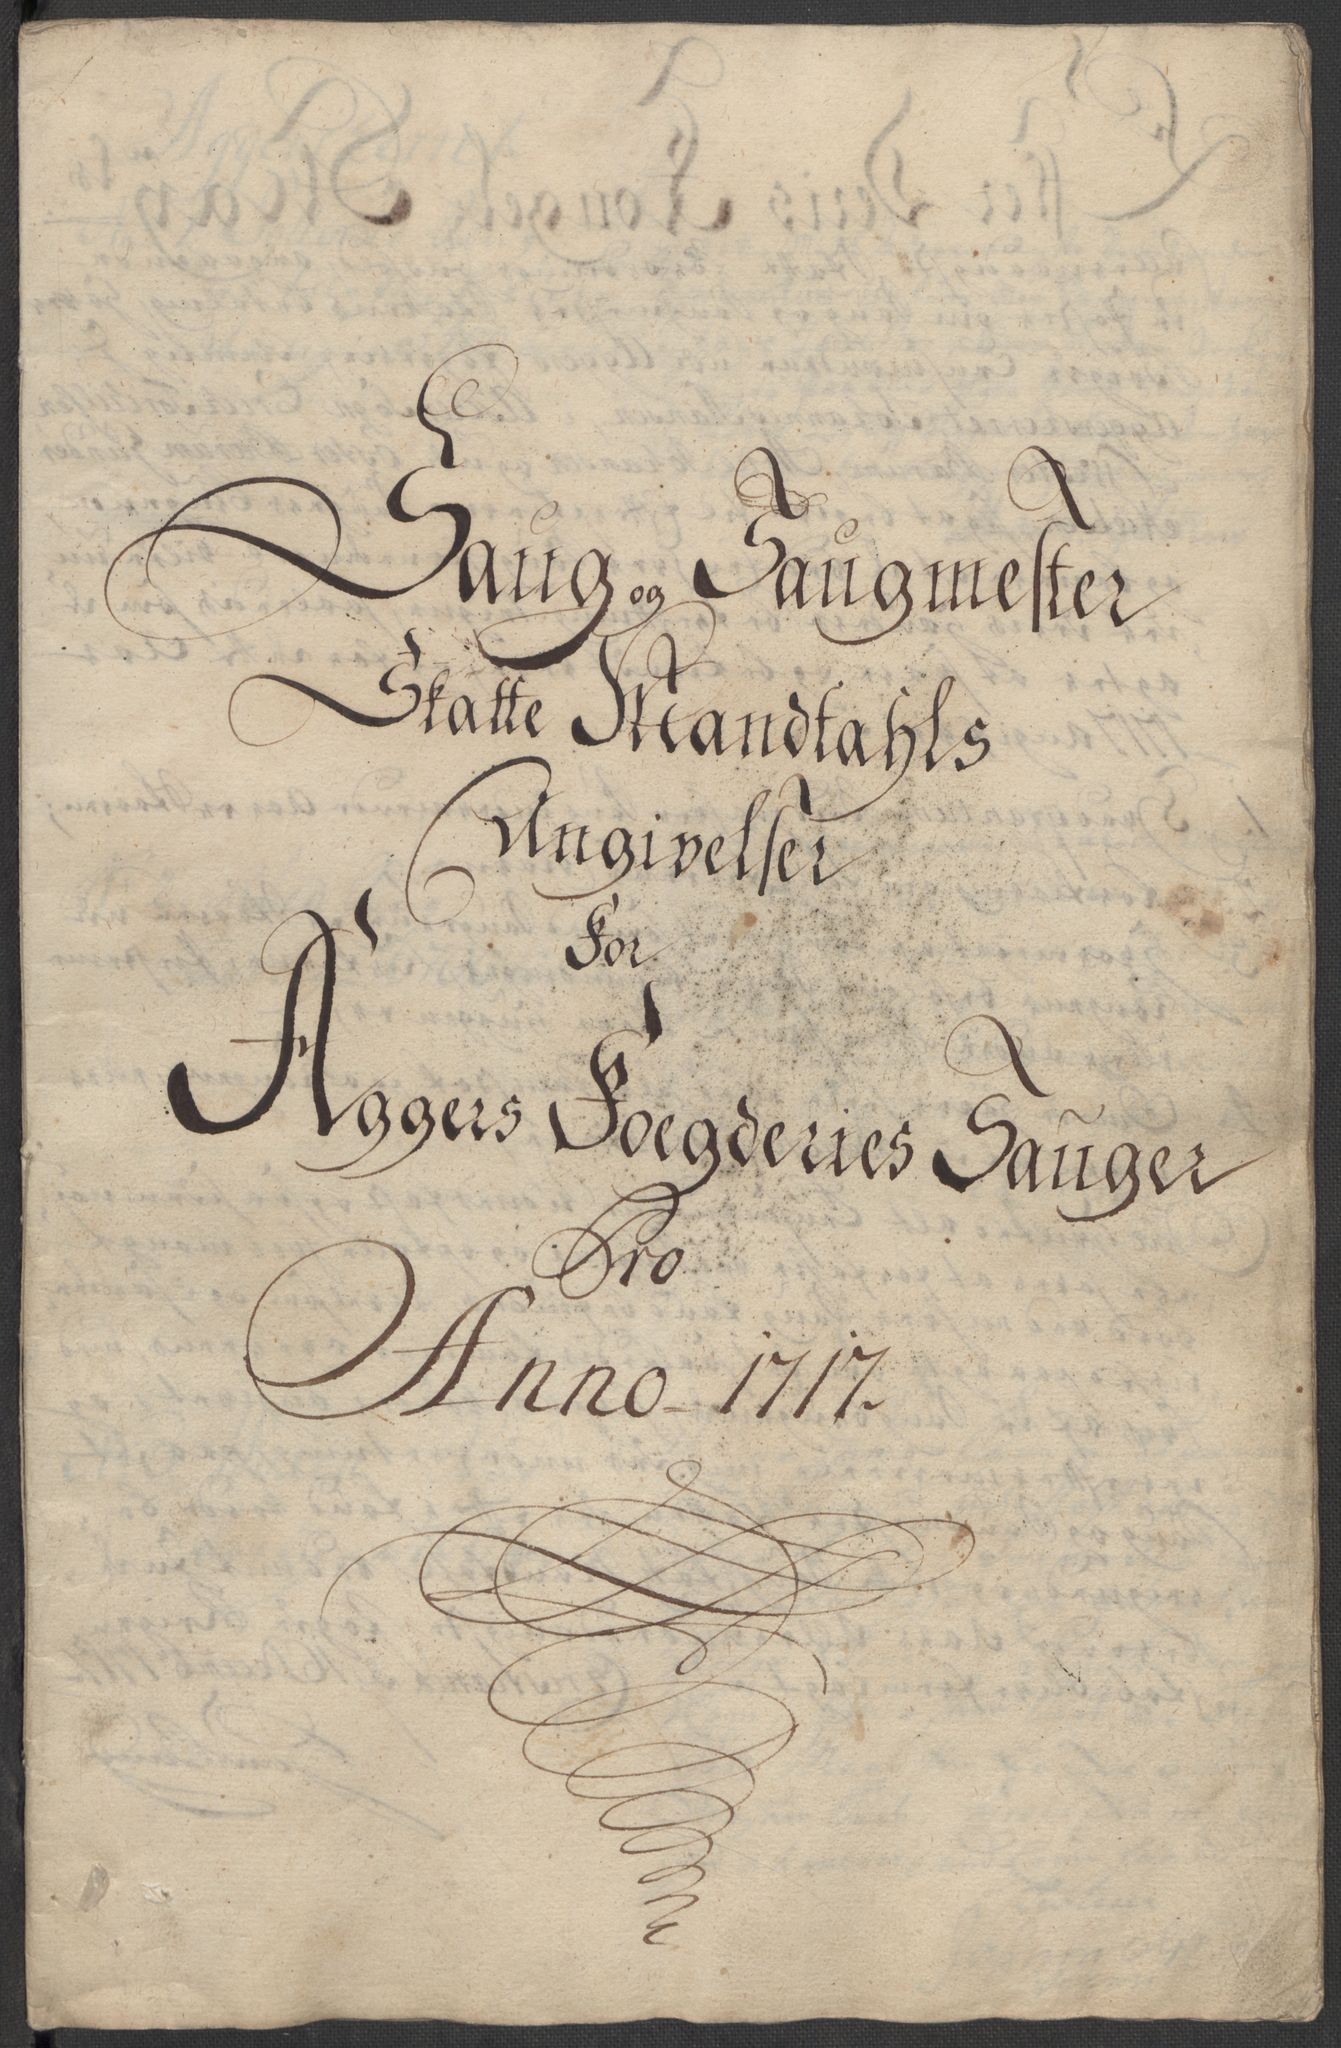 Saug og Saugmester
Skatte Mandtahls
Angivelser
For
Aggers Foegderies Sauger
Pro
Anno 1717.